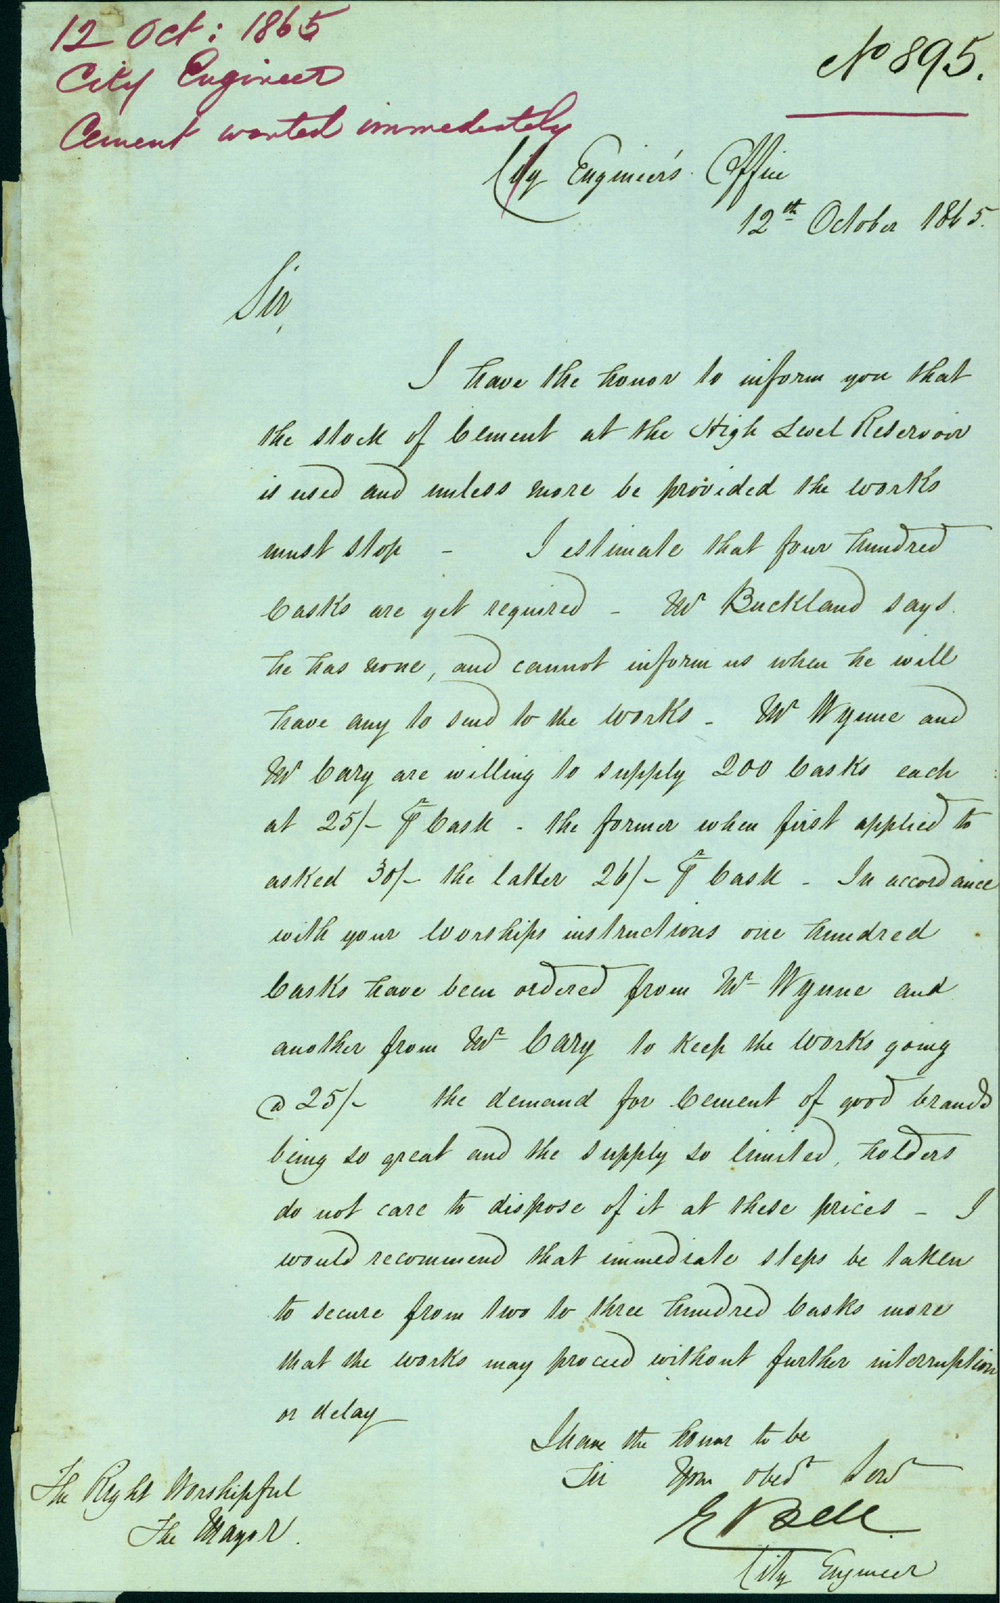 12 Oct: 1865
City Engineer
Cement wanted immediately
No 895.
City Engineer's Office
12th October 1865.
Sir,
I have the honor to inform you that
the stock of Cement at the High Level Reservoir
is used and unless more be provided the works
must stop - I estimate that four hundred
Casks are yet required - Mr Buckland says
he has none, and cannot inform us when he will
have any to send to the works - Mr Wynne and
Mr Cary are willing to supply 200 Casks each
at 25/- ⅌ Cask - the former when first applied to
asked 30/- the latter 26/- ⅌ Cask - In accordance
with your Worships instructions one hundred
Casks have been ordered from Mr Wynne and
another from Mr Cary to keep the works going
@ 25/- the demand for Cement of good brands
being so great and the supply so limited, holders
do not care to dispose of it at these prices - I
would recommend that immediate steps be taken
to secure from two to three hundred Casks more
that the works may proceed without further interruption
or delay
I have the honor to be
Sir Your obedt Servt
E Bell
City Engineer
The Right Worshipful
The Mayor.